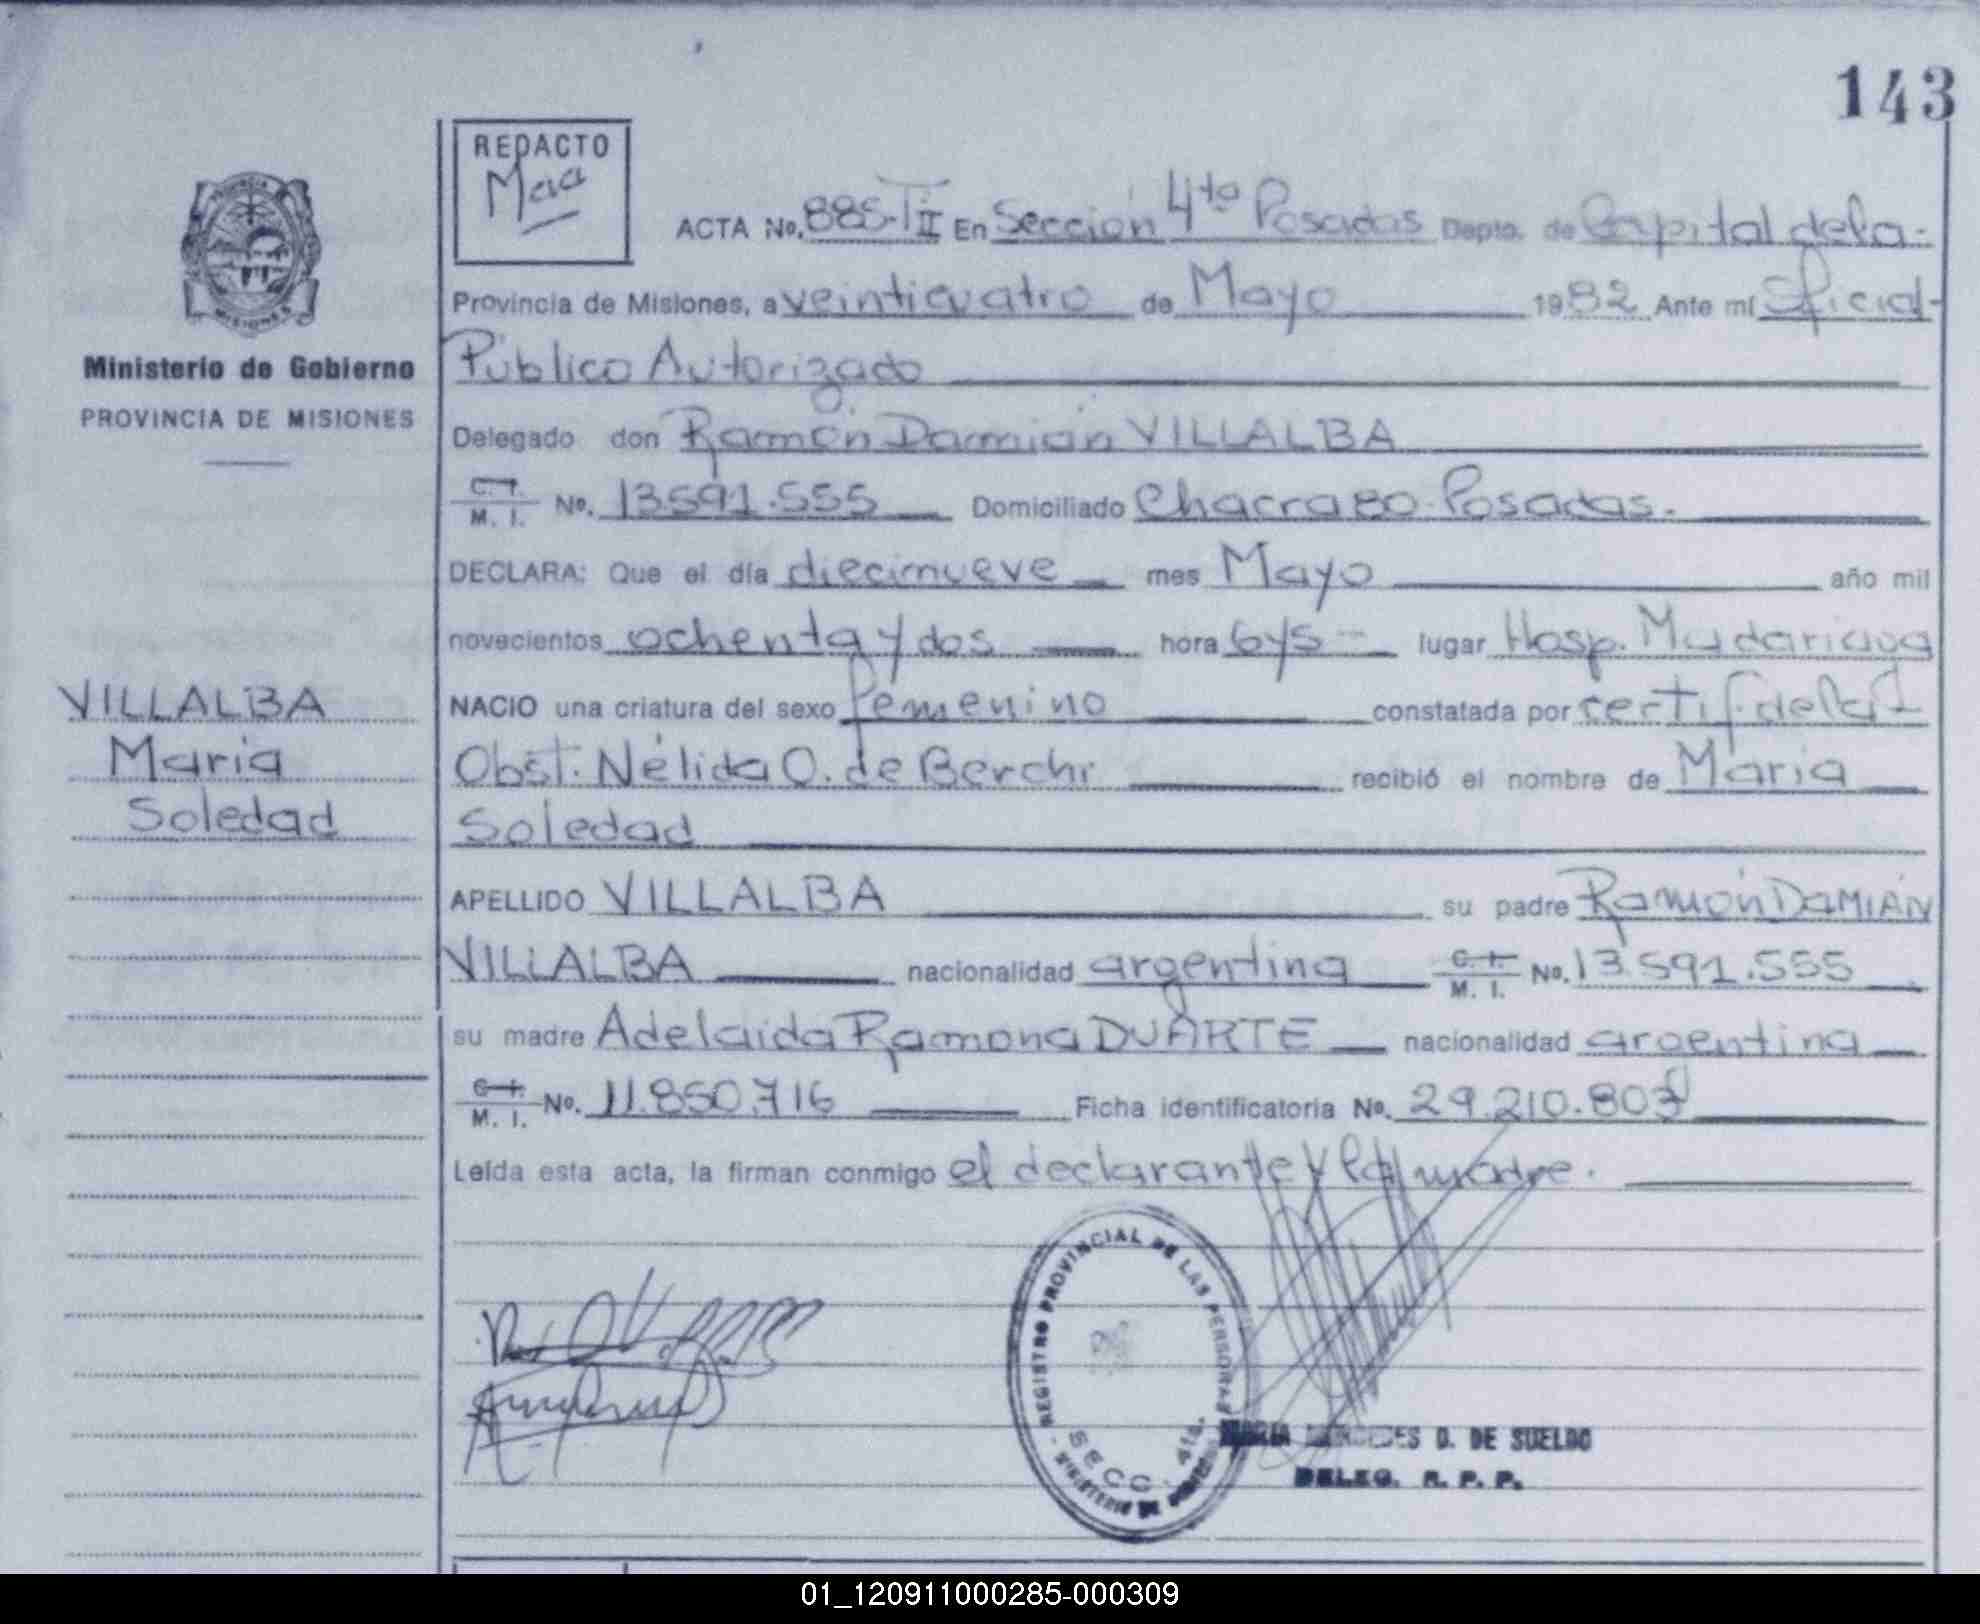 143
REDACTO
ACTA No. 885-T II En Sección 4ta Posadas Depto. de Capital de la-
Provincia de Misiones, a veinticuatro de Mayo 1982 Ante mí Oficial-
Ministerio de Gobierno
Público Autorizado
PROVINCIA DE MISIONES
Delegado don Ramón Damián VILLALBA
C. I. M. I. No. 13.591.555 Domiciliado Chacra 80-Posadas.
DECLARA: Que el día diecinueve mes Mayo año mil
novecientos ochenta y dos hora 6 y 5 lugar Hosp. Madariaga
VILLALBA
NACIO una criatura del sexo femenino constatada por certif. de la
María
Obst. Nélida O. de Berchi recibió el nombre de María
Soledad
Soledad
APELLIDO VILLALBA su padre Ramón DAMIÁN
VILLALBA nacionalidad argentina C. I. M. I. No. 13.591.555
su madre Adelaida Ramona DUARTE nacionalidad argentina
C. I. M. I. No. 11.850.716 Ficha identificatoria No. 29.210.803
Leída esta acta, la firman conmigo el declarante y la madre.
REGISTRO PROVINCIAL DE LAS PERSONAS
SECC. 4ta.
MINISTERIO DE GOBIERNO
MARIA MERCEDES D. DE SUELDO
DELEG. R. P. P.
01_120911000285-000309